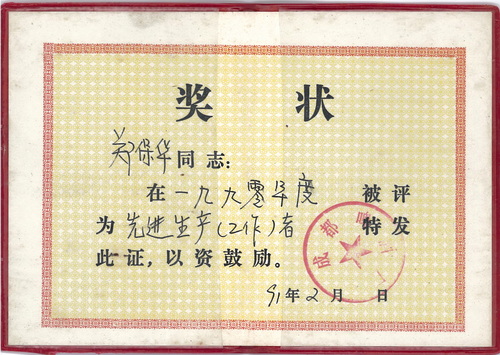 奖状
郑保华同志：
在一九九零年度被评
为先进生产(工作)者特发
此证，以资鼓励。
成都
91年2月 日